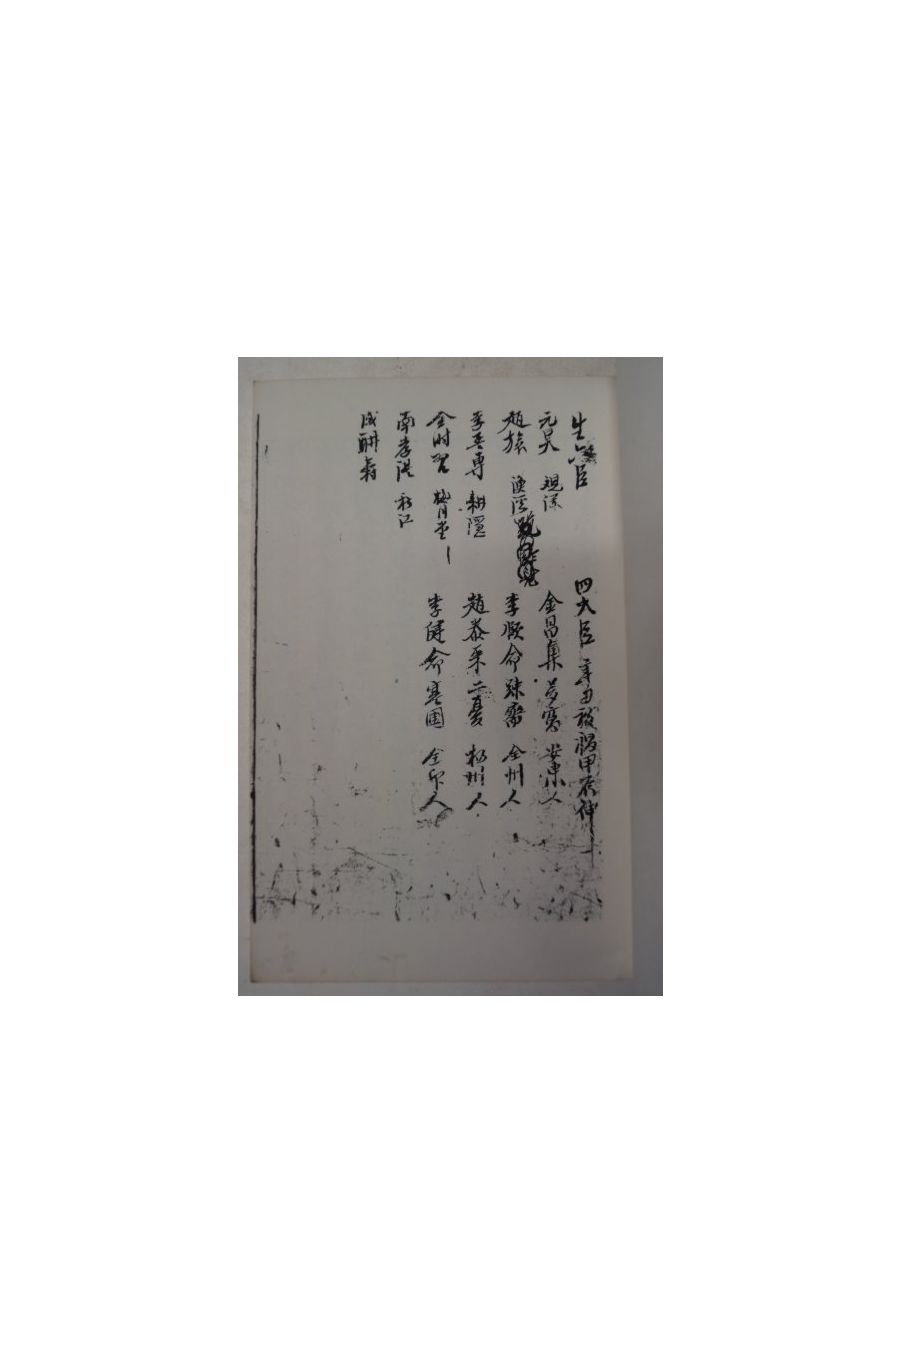 生六臣
元昊 觀瀾
趙旅 漁溪
李孟專 耕隱
金時習 梅月堂
南孝溫 秋江
成聃壽
四大臣 辛丑被禍甲辰伸
金昌集 夢窩 安東人
李頤命 疎齋 全州人
趙泰采 二憂 楊州人
李健命 寒圃 全州人